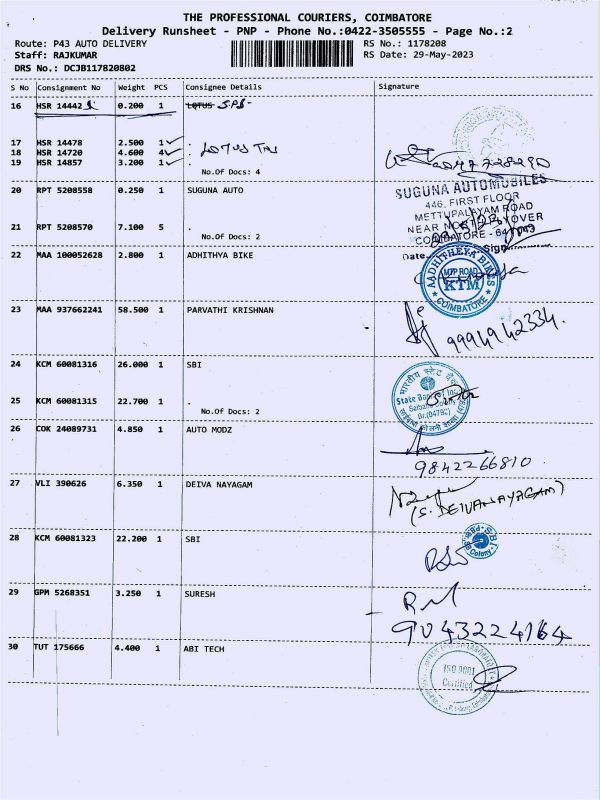 THE PROFESSIONAL COURIERS, COIMBATORE
Delivery Runsheet - PNP - Phone No.:0422-3505555 - Page No.:2
Route: P43 AUTO DELIVERY
RS No.: 1178208
Staff: RAJKUMAR
RS Date: 29-May-2023
DRS No.: DCJB117820802
S No Consignment No Weight PCS Consignee Details Signature
16 HSR 14442 0.200 1 LOTUS
17 HSR 14478 2.500 1 .
18 HSR 14720 4.600 4 . LOTUS
19 HSR 14857 3.200 1 .
No.Of Docs: 4
20 RPT 5208558 0.250 1 SUGUNA AUTO
SUGUNA AUTOMOBILES
446, FIRST FLOOR
METTUPALAYAM ROAD
NEAR NORTH FLYOVER
COIMBATORE - 641 043
21 RPT 5208570 7.100 5 .
No.Of Docs: 2
Date. Sign
22 MAA 100052628 2.800 1 ADHITHYA BIKE
AADHITHEYA BIKES
MTP ROAD
KTM
COIMBATORE
23 MAA 937662241 58.500 1 PARVATHI KRISHNAN
9994942334.
24 KCM 60081316 26.000 1 SBI
भारतीय स्टेट बैंक
State Bank of India
Saibaba Colony
Br.(04790)
25 KCM 60081315 22.700 1 .
No.Of Docs: 2
26 COK 24089731 4.850 1 AUTO MODZ
9842266810
27 VLI 390626 6.350 1 DEIVA NAYAGAM
(S. DEIVANAYAGAM)
28 KCM 60081323 22.200 1 SBI
SBI
Colony
29 GPM 5268351 3.250 1 SURESH
9043224164
30 TUT 175666 4.400 1 ABI TECH
ISO 9001
Certified